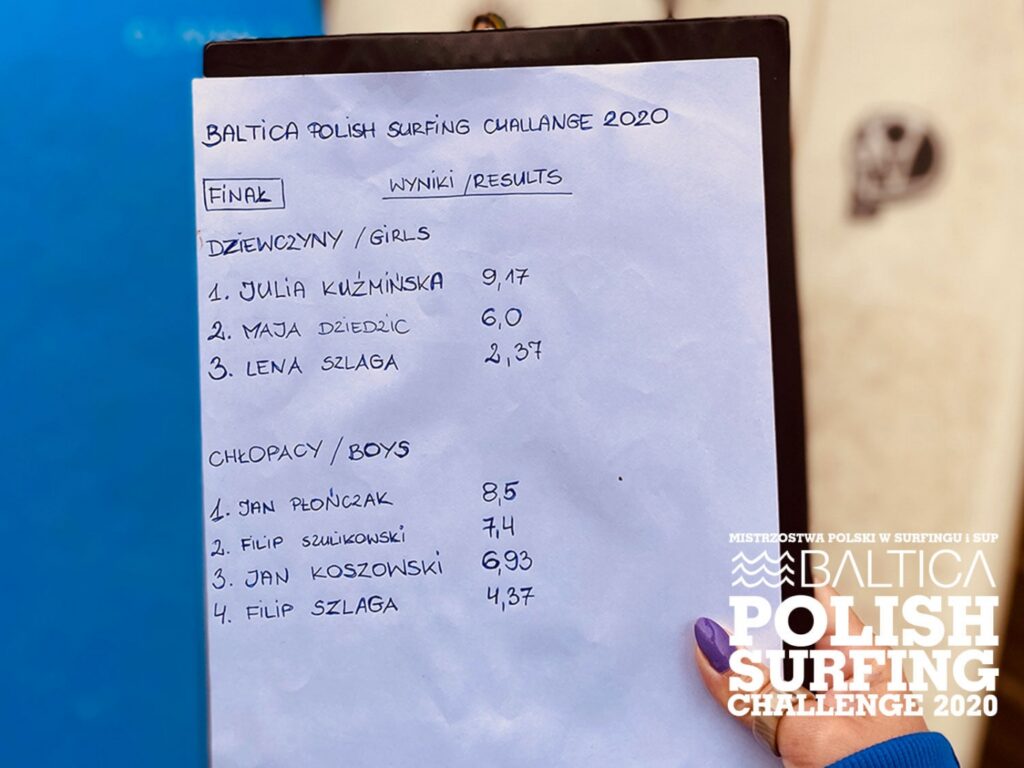 BALTICA POLISH SURFING CHALLANGE 2020
FINAŁ
WYNIKI / RESULTS
DZIEWCZYNY / GIRLS
1. JULIA KUŹMIŃSKA 9,17
2. MAJA DZIEDZIC 6,0
3. LENA SZLAGA 2,37
CHŁOPACY / BOYS
1. JAN PŁOŃCZAK 8,5
2. FILIP SZULIKOWSKI 7,4
3. JAN KOSZOWSKI 6,93
4. FILIP SZLAGA 4,37
MISTRZOSTWA POLSKI W SURFINGU i SUP
BALTICA
POLISH
SURFING
CHALLENGE 2020